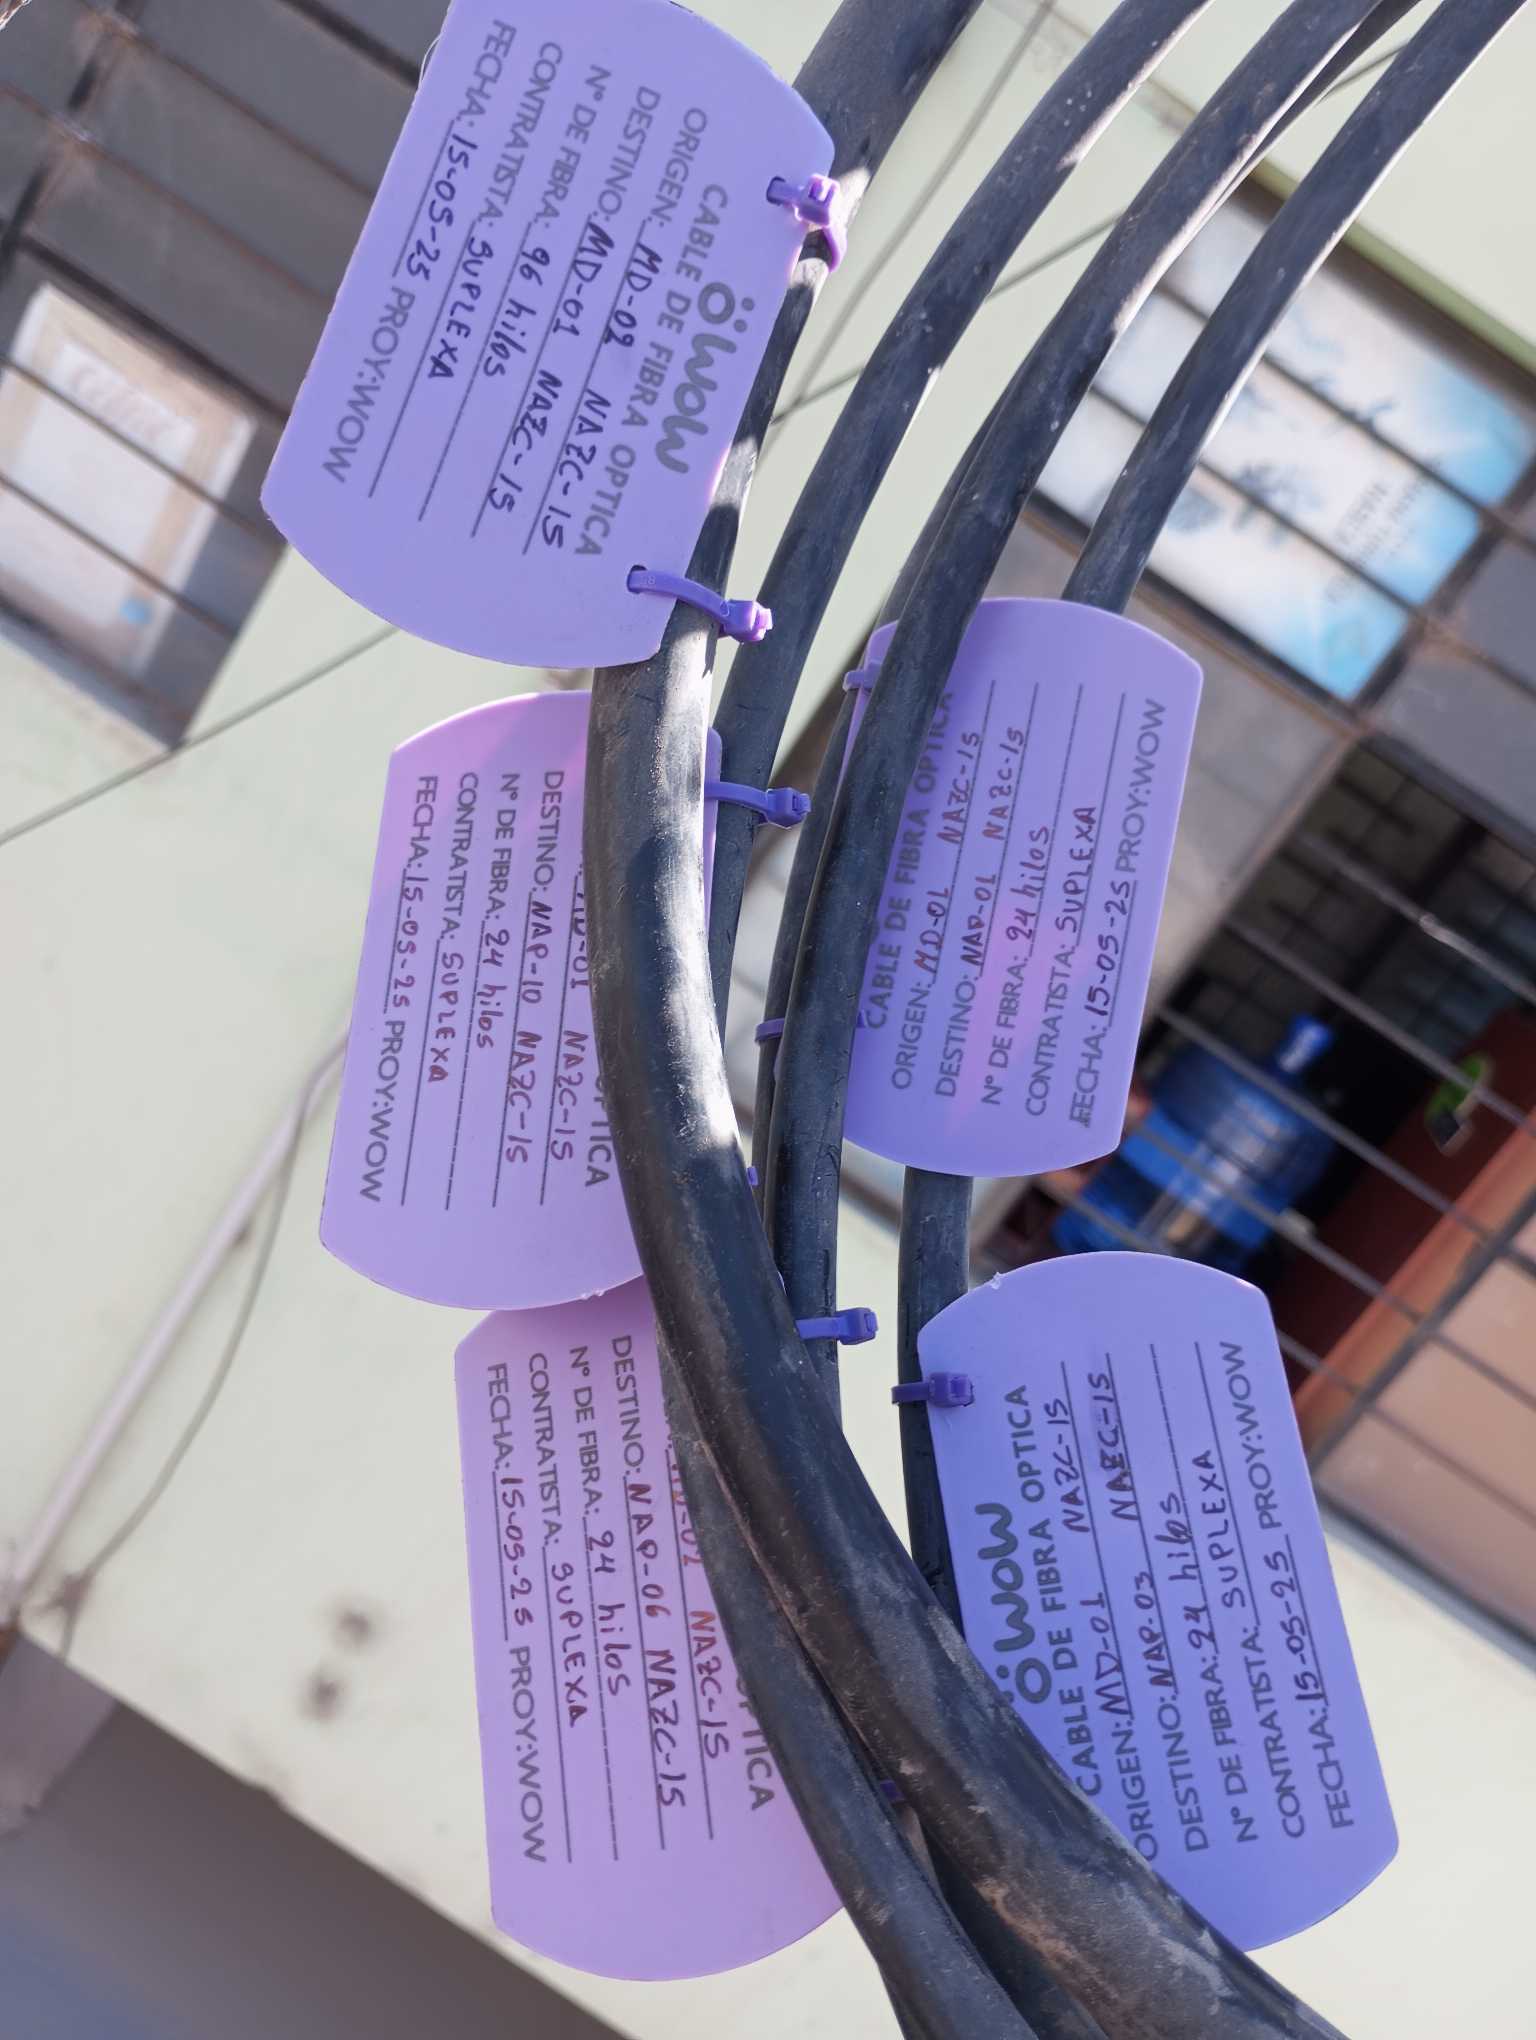 wow
CABLE DE FIBRA OPTICA
ORIGEN: MD-02 NAZC-15
DESTINO: MD-01 NAZC-15
N° DE FIBRA: 96 hilos
CONTRATISTA: SUPLEXA
FECHA: 15-05-25 PROY:WOW
MD-01 NAZC-15
DESTINO: NAP-10 NAZC-15
N° DE FIBRA: 24 hilos
CONTRATISTA: SUPLEXA
FECHA: 15-05-25 PROY:WOW
CABLE DE FIBRA OPTICA
ORIGEN: MD-01 NAZC-15
DESTINO: NAP-01 NAZC-15
N° DE FIBRA: 24 hilos
CONTRATISTA: SUPLEXA
FECHA: 15-05-25 PROY:WOW
NAZC-15
DESTINO: NAP-06 NAZC-15
N° DE FIBRA: 24 hilos
CONTRATISTA: SUPLEXA
FECHA: 15-05-25 PROY:WOW
wow
CABLE DE FIBRA OPTICA
ORIGEN: MD-01 NAZC-15
DESTINO: NAP-03 NAZC-15
N° DE FIBRA: 24 hilos
CONTRATISTA: SUPLEXA
FECHA: 15-05-25 PROY:WOW